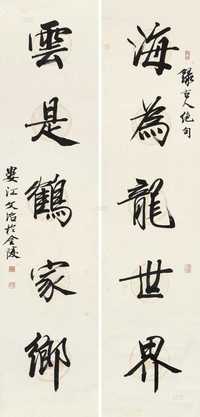 海為龍世界
錄古人絕句
雲是鶴家鄉
婁江文治於金陵